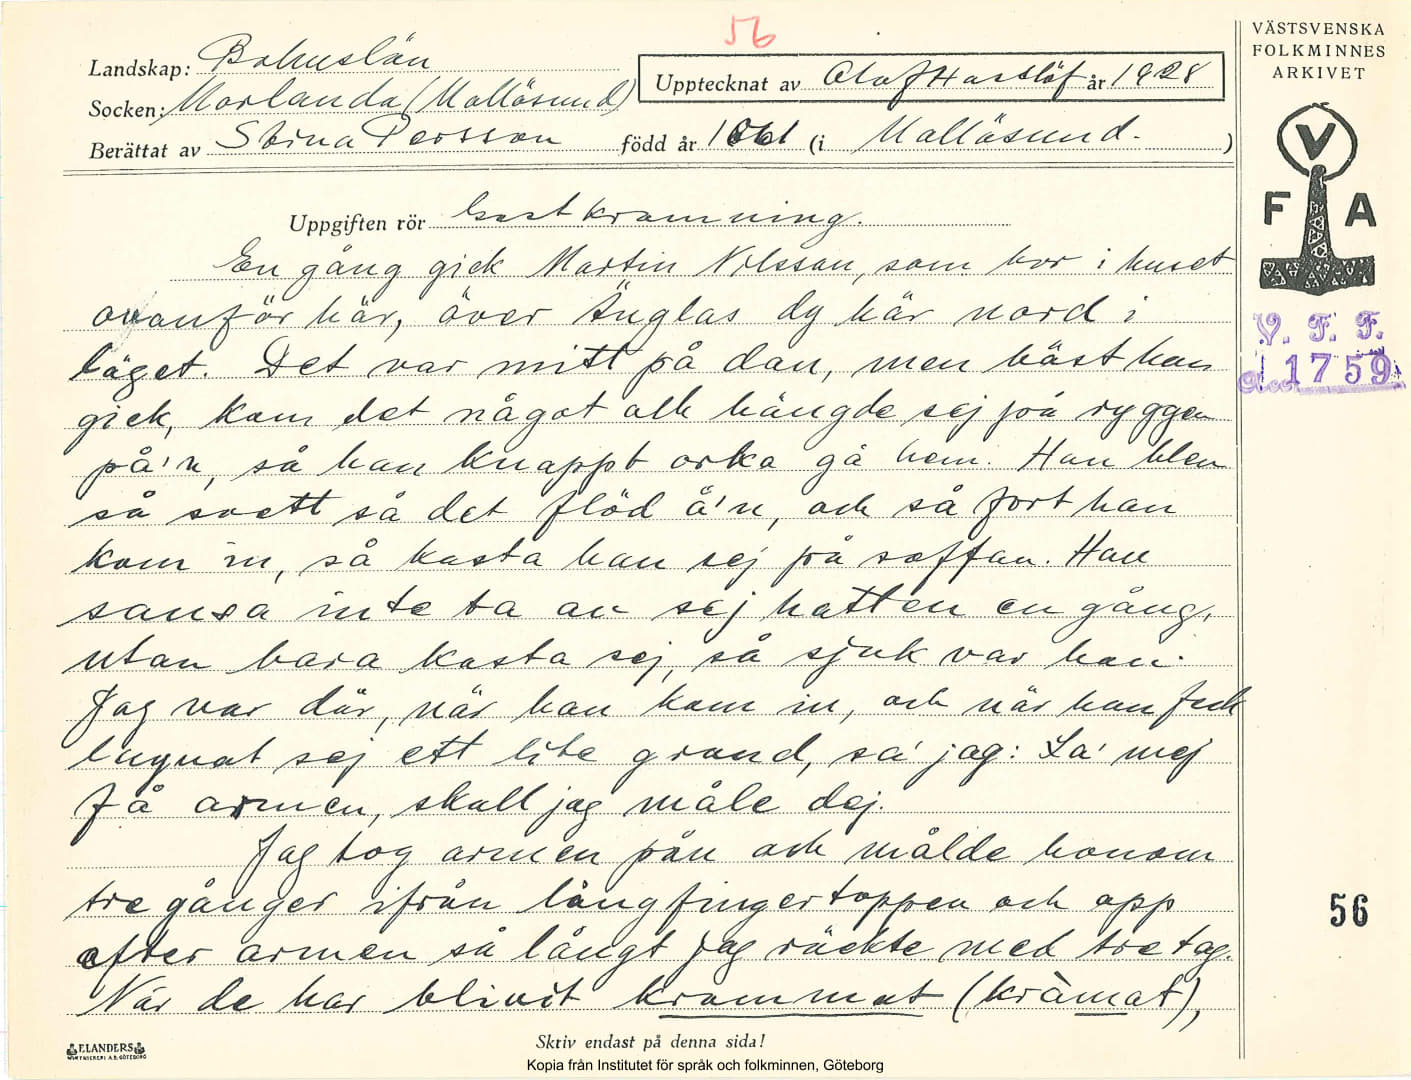 56
VÄSTSVENSKA
FOLKMINNES
ARKIVET
Landskap: Bohuslän
Upptecknat av Olof Hasslöf år 1928
Socken: Morlanda (Mollösund)
Berättat av Stina Persson född år 1861 (i Mollösund. )
V
F A
Uppgiften rör Gastkramning.
En gång gick Martin Nilsson, som bor i huset
ovanför här, över Änglas dy här nord i
läget. Det var mitt på dan, men bäst han
gick, kom det något och hängde sej på ryggen
på'n, så han knappt orka gå hem. Han blev
så svett så det flöd å'n, och så fort han
kom in, så kasta han sej på soffan. Han
sansa inte ta av sej hatten en gång,
utan bara kasta sej, så sjuk var han.
Jag var där, när han kom in, och när han fick
lugnat sej ett lite grand, sa' jag: La' mej
få armen, skall jag måle dej.
Jag tog armen på'n och målde honom
tre gånger ifrån långfingertoppen och opp
efter armen så långt jag räckte med tre tag.
När de har blivit krammat (kràmat),
V. F. F.
Acc. 1759
56
ELANDERS
Skriv endast på denna sida!
Kopia från Institutet för språk och folkminnen, Göteborg